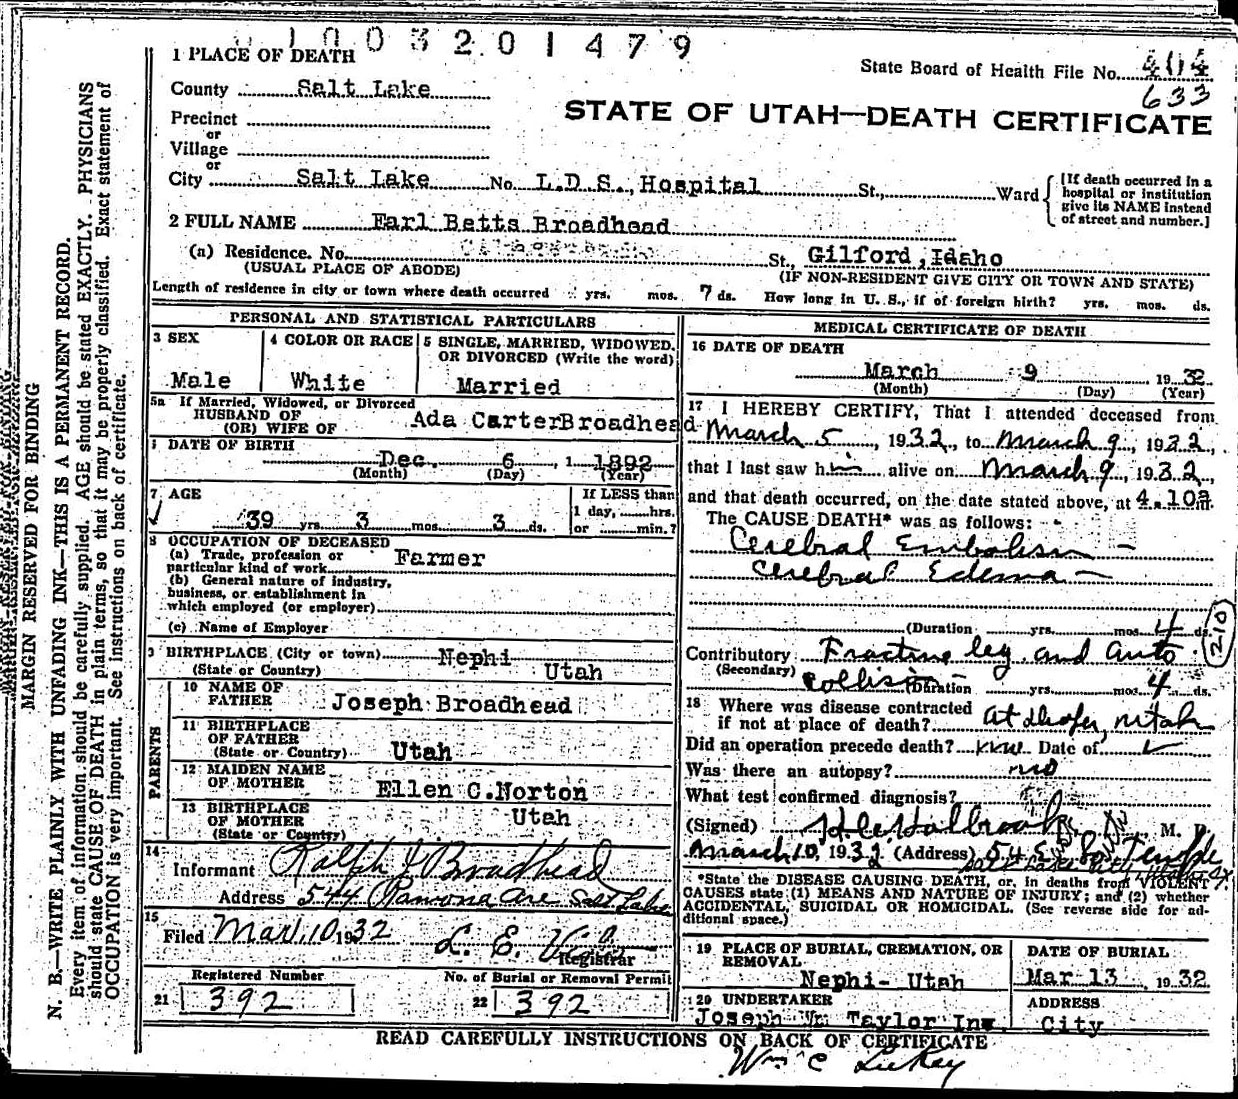 1003201479
1 PLACE OF DEATH
State Board of Health File No. 404
633
County Salt Lake
STATE OF UTAH—DEATH CERTIFICATE
Precinct
or
Village
or
City Salt Lake No. L.D.S., Hospital St., Ward
[If death occurred in a hospital or institution give its NAME instead of street and number.]
2 FULL NAME Earl Betts Broadhead
(a) Residence. No. St., Gilford, Idaho
(USUAL PLACE OF ABODE) (IF NON-RESIDENT GIVE CITY OR TOWN AND STATE)
Length of residence in city or town where death occurred yrs. mos. 7 ds. How long in U. S., if of foreign birth? yrs. mos. ds.
PERSONAL AND STATISTICAL PARTICULARS
3 SEX
Male
4 COLOR OR RACE
White
5 SINGLE, MARRIED, WIDOWED, OR DIVORCED (Write the word)
Married
5a If Married, Widowed, or Divorced
HUSBAND OF
(OR) WIFE OF Ada Carter Broadhead
DATE OF BIRTH
Dec. 6, 1892
(Month) (Day) (Year)
7 AGE
39 yrs. 3 mos. 3 ds.
If LESS than
1 day, hrs.
or min.?
8 OCCUPATION OF DECEASED
(a) Trade, profession or
particular kind of work Farmer
(b) General nature of industry,
business, or establishment in
which employed (or employer)
(c) Name of Employer
9 BIRTHPLACE (City or town) Nephi
(State or Country) Utah
PARENTS
10 NAME OF
FATHER Joseph Broadhead
11 BIRTHPLACE
OF FATHER
(State or Country) Utah
12 MAIDEN NAME
OF MOTHER Ellen C. Norton
13 BIRTHPLACE
OF MOTHER Utah
(State or Country)
14
Informant Ralph J Broadhead
Address 544 Ramona Ave Salt Lake
15
Filed Mar. 10, 1932 L. E.
Registrar
Registered Number No. of Burial or Removal Permit
21 392 22 392
MEDICAL CERTIFICATE OF DEATH
16 DATE OF DEATH
March 9 1932
(Month) (Day) (Year)
17 I HEREBY CERTIFY, That I attended deceased from
March 5, 1932, to March 9, 1932,
that I last saw him alive on March 9, 1932,
and that death occurred, on the date stated above, at 4.10a m.
The CAUSE DEATH* was as follows:
Cerebral Embolism —
Cerebral Edema —
(Duration yrs. mos. 4 ds.
210
Contributory Fracture leg and auto
(Secondary) collision (Duration yrs. mos. 4 ds.
18 Where was disease contracted
if not at place of death? At Utah
Did an operation precede death? Date of
Was there an autopsy? no
What test confirmed diagnosis?
(Signed) Holbrook, M. D.
March 10, 1932 (Address) 54 E. So Temple
*State the DISEASE CAUSING DEATH, or, in deaths from VIOLENT
CAUSES state (1) MEANS AND NATURE OF INJURY; and (2) whether
ACCIDENTAL, SUICIDAL OR HOMICIDAL. (See reverse side for ad-
ditional space.)
19 PLACE OF BURIAL, CREMATION, OR
REMOVAL
Nephi- Utah
DATE OF BURIAL
Mar 13, 1932
20 UNDERTAKER
Joseph Wm Taylor Inc.
ADDRESS
City
READ CAREFULLY INSTRUCTIONS ON BACK OF CERTIFICATE
Wm C
MARGIN RESERVED FOR BINDING
N. B.—WRITE PLAINLY WITH UNFADING INK—THIS IS A PERMANENT RECORD.
Every item of information should be carefully supplied. AGE should be stated EXACTLY. PHYSICIANS
should state CAUSE OF DEATH in plain terms, so that it may be properly classified. Exact statement of
OCCUPATION is very important. See instructions on back of certificate.